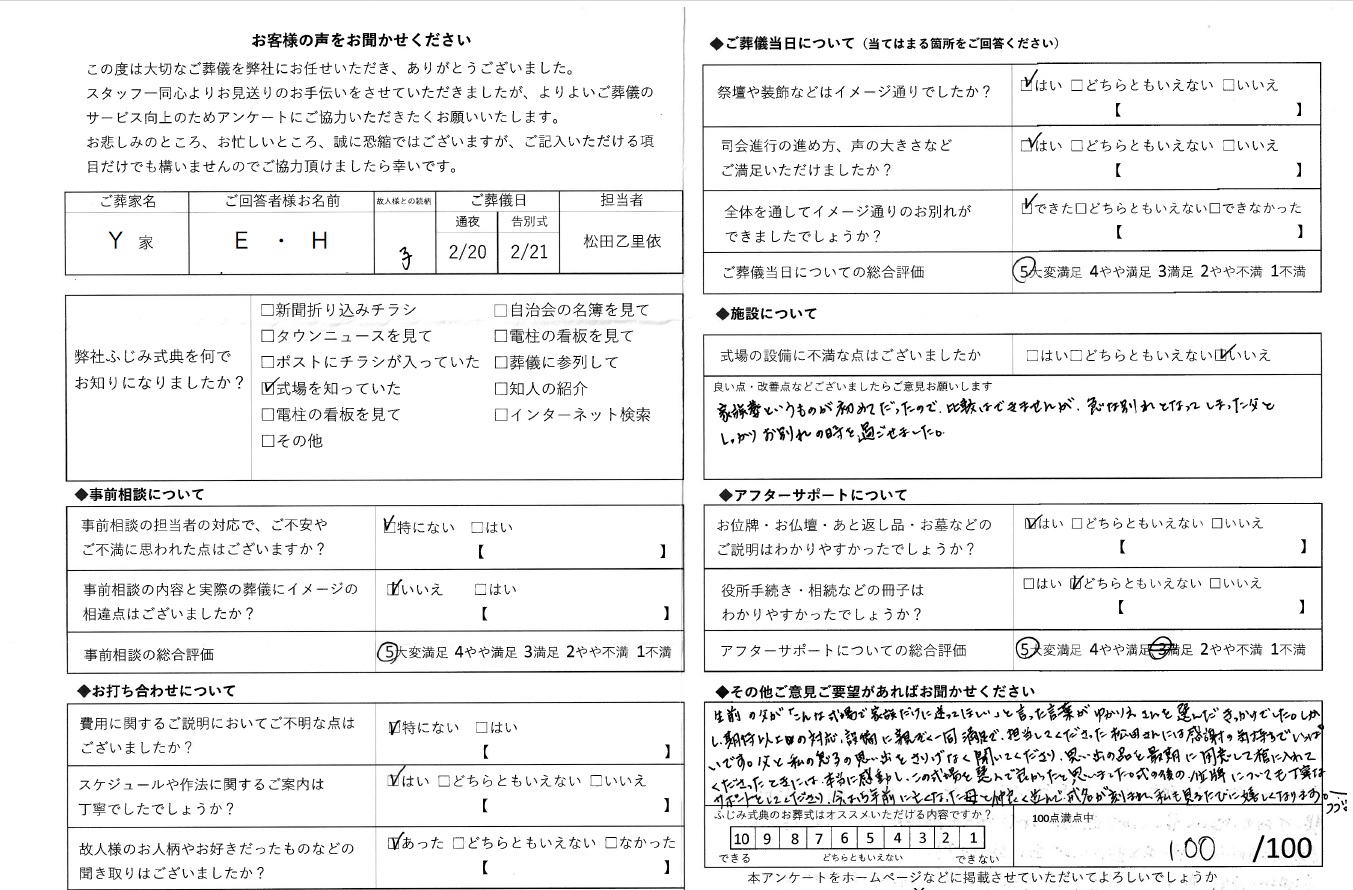 お客様の声をお聞かせください
この度は大切なご葬儀を弊社にお任せいただき、ありがとうございました。
スタッフ一同心よりお見送りのお手伝いをさせていただきましたが、よりよいご葬儀の
サービス向上のためアンケートにご協力いただきたくお願いいたします。
お悲しみのところ、お忙しいところ、誠に恐縮ではございますが、ご記入いただける項
目だけでも構いませんのでご協力頂けましたら幸いです。
ご葬家名 ご回答者様お名前 故人様との続柄 ご葬儀日 担当者
通夜 告別式
Y 家 E ・ H 子 2/20 2/21 松田乙里依
弊社ふじみ式典を何で
お知りになりましたか?
□新聞折り込みチラシ □自治会の名簿を見て
□タウンニュースを見て □電柱の看板を見て
□ポストにチラシが入っていた □葬儀に参列して
☑式場を知っていた □知人の紹介
□電柱の看板を見て □インターネット検索
□その他
◆事前相談について
事前相談の担当者の対応で、ご不安や
ご不満に思われた点はございますか?
☑特にない □はい
【 】
事前相談の内容と実際の葬儀にイメージの
相違点はございましたか?
☑いいえ □はい
【 】
事前相談の総合評価 5大変満足 4やや満足 3満足 2やや不満 1不満
◆お打ち合わせについて
費用に関するご説明においてご不明な点は
ございましたか?
☑特にない □はい
【 】
スケジュールや作法に関するご案内は
丁寧でしたでしょうか?
☑はい □どちらともいえない □いいえ
【 】
故人様のお人柄やお好きだったものなどの
聞き取りはございましたか?
☑あった □どちらともいえない □なかった
【 】
◆ご葬儀当日について（当てはまる箇所をご回答ください）
祭壇や装飾などはイメージ通りでしたか?
☑はい □どちらともいえない □いいえ
【 】
司会進行の進め方、声の大きさなど
ご満足いただけましたか?
☑はい □どちらともいえない □いいえ
【 】
全体を通してイメージ通りのお別れが
できましたでしょうか?
☑できた□どちらともいえない□できなかった
【 】
ご葬儀当日についての総合評価 5大変満足 4やや満足 3満足 2やや不満 1不満
◆施設について
式場の設備に不満な点はございましたか □はい□どちらともいえない☑いいえ
良い点・改善点などございましたらご意見お願いします
家族葬というものが初めてだったので、比較はできませんが、急な別れとなってしまった父と
しっかりお別れの時を過ごせました。
◆アフターサポートについて
お位牌・お仏壇・あと返し品・お墓などの
ご説明はわかりやすかったでしょうか?
☑はい □どちらともいえない □いいえ
【 】
役所手続き・相続などの冊子は
わかりやすかったでしょうか?
□はい ☑どちらともいえない □いいえ
【 】
アフターサポートについての総合評価 5大変満足 4やや満足 3満足 2やや不満 1不満
◆その他ご意見ご要望があればお聞かせください
生前の父が「こんな式場で家族だけに送ってほしい」と言った言葉がゆかりえさんを選んだきっかけでした。しか
し、期待以上の対応、設備に親ぞく一同満足で、担当してくださった松田さんには感謝の気持ちでいっぱ
いです。父と私の息子の思い出をさりげなく聞いてくださり、思い出の品を最期に用意して棺に入れて
くださったときには、本当に感動し、この式場を選んで良かったと思いました。式の後の位牌についても丁寧な
サポートをしてくださり、今は 年前に亡くなった母と仲良く並んで戒名が刻まれ、私も見るたびに嬉しくなります。
ふじみ式典のお葬式はオススメいただける内容ですか?
10 9 8 7 6 5 4 3 2 1
できる どちらともいえない できない
100点満点中
100 /100
本アンケートをホームページなどに掲載させていただいてよろしいでしょうか